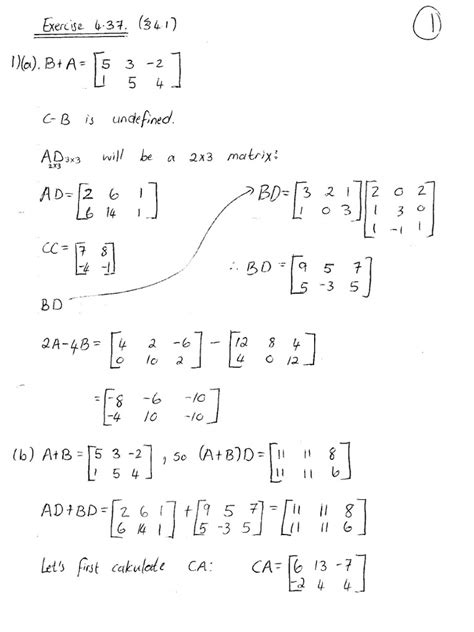 Exercise 4.37. (§4.1)
1
1)(a). B+A = [5 3 -2
1 5 4]
C-B is undefined.
AD 2x3 3x3 will be a 2x3 matrix:
AD = [2 6 1
6 14 1]
BD = [3 2 1
1 0 3] [2 0 2
1 3 0
1 -1 1]
CC = [7 8
-4 -1]
∴ BD = [9 5 7
5 -3 5]
BD
2A-4B = [4 2 -6
0 10 2] - [12 8 4
4 0 12]
= [-8 -6 -10
-4 10 -10]
(b) A+B = [5 3 -2
1 5 4], so (A+B)D = [11 11 8
11 11 6]
AD+BD = [2 6 1
6 14 1] + [9 5 7
5 -3 5] = [11 11 8
11 11 6]
Let's first calculate CA: CA = [6 13 -7
-2 4 4]